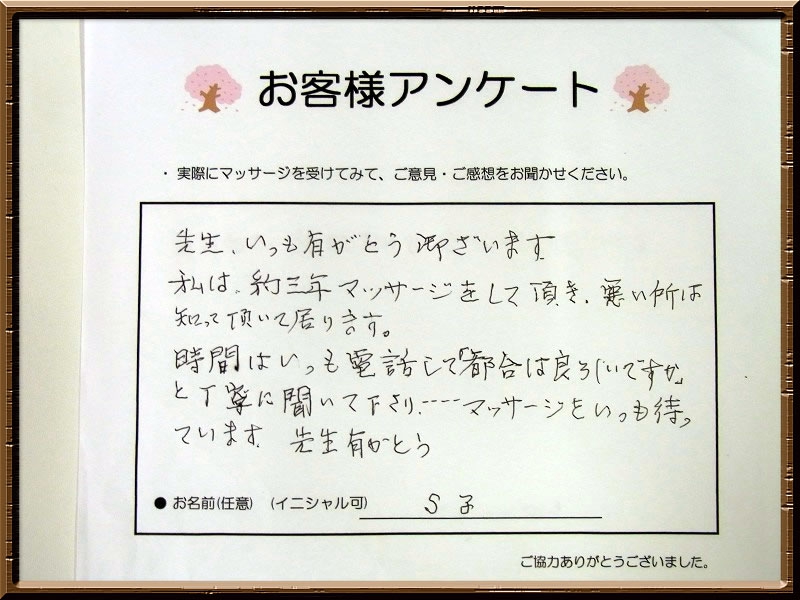 お客様アンケート
・実際にマッサージを受けてみて、ご意見・ご感想をお聞かせください。
先生、いつも有がとう御ざいます
私は、約三年マッサージをして頂き、悪い所は
知って頂いて居ります。
時間はいつも電話して「都合は良ろしいですか」
と丁寧に聞いて下さり、----マッサージをいつも待っ
ています 先生有がとう
● お名前(任意) (イニシャル可) S子
ご協力ありがとうございました。